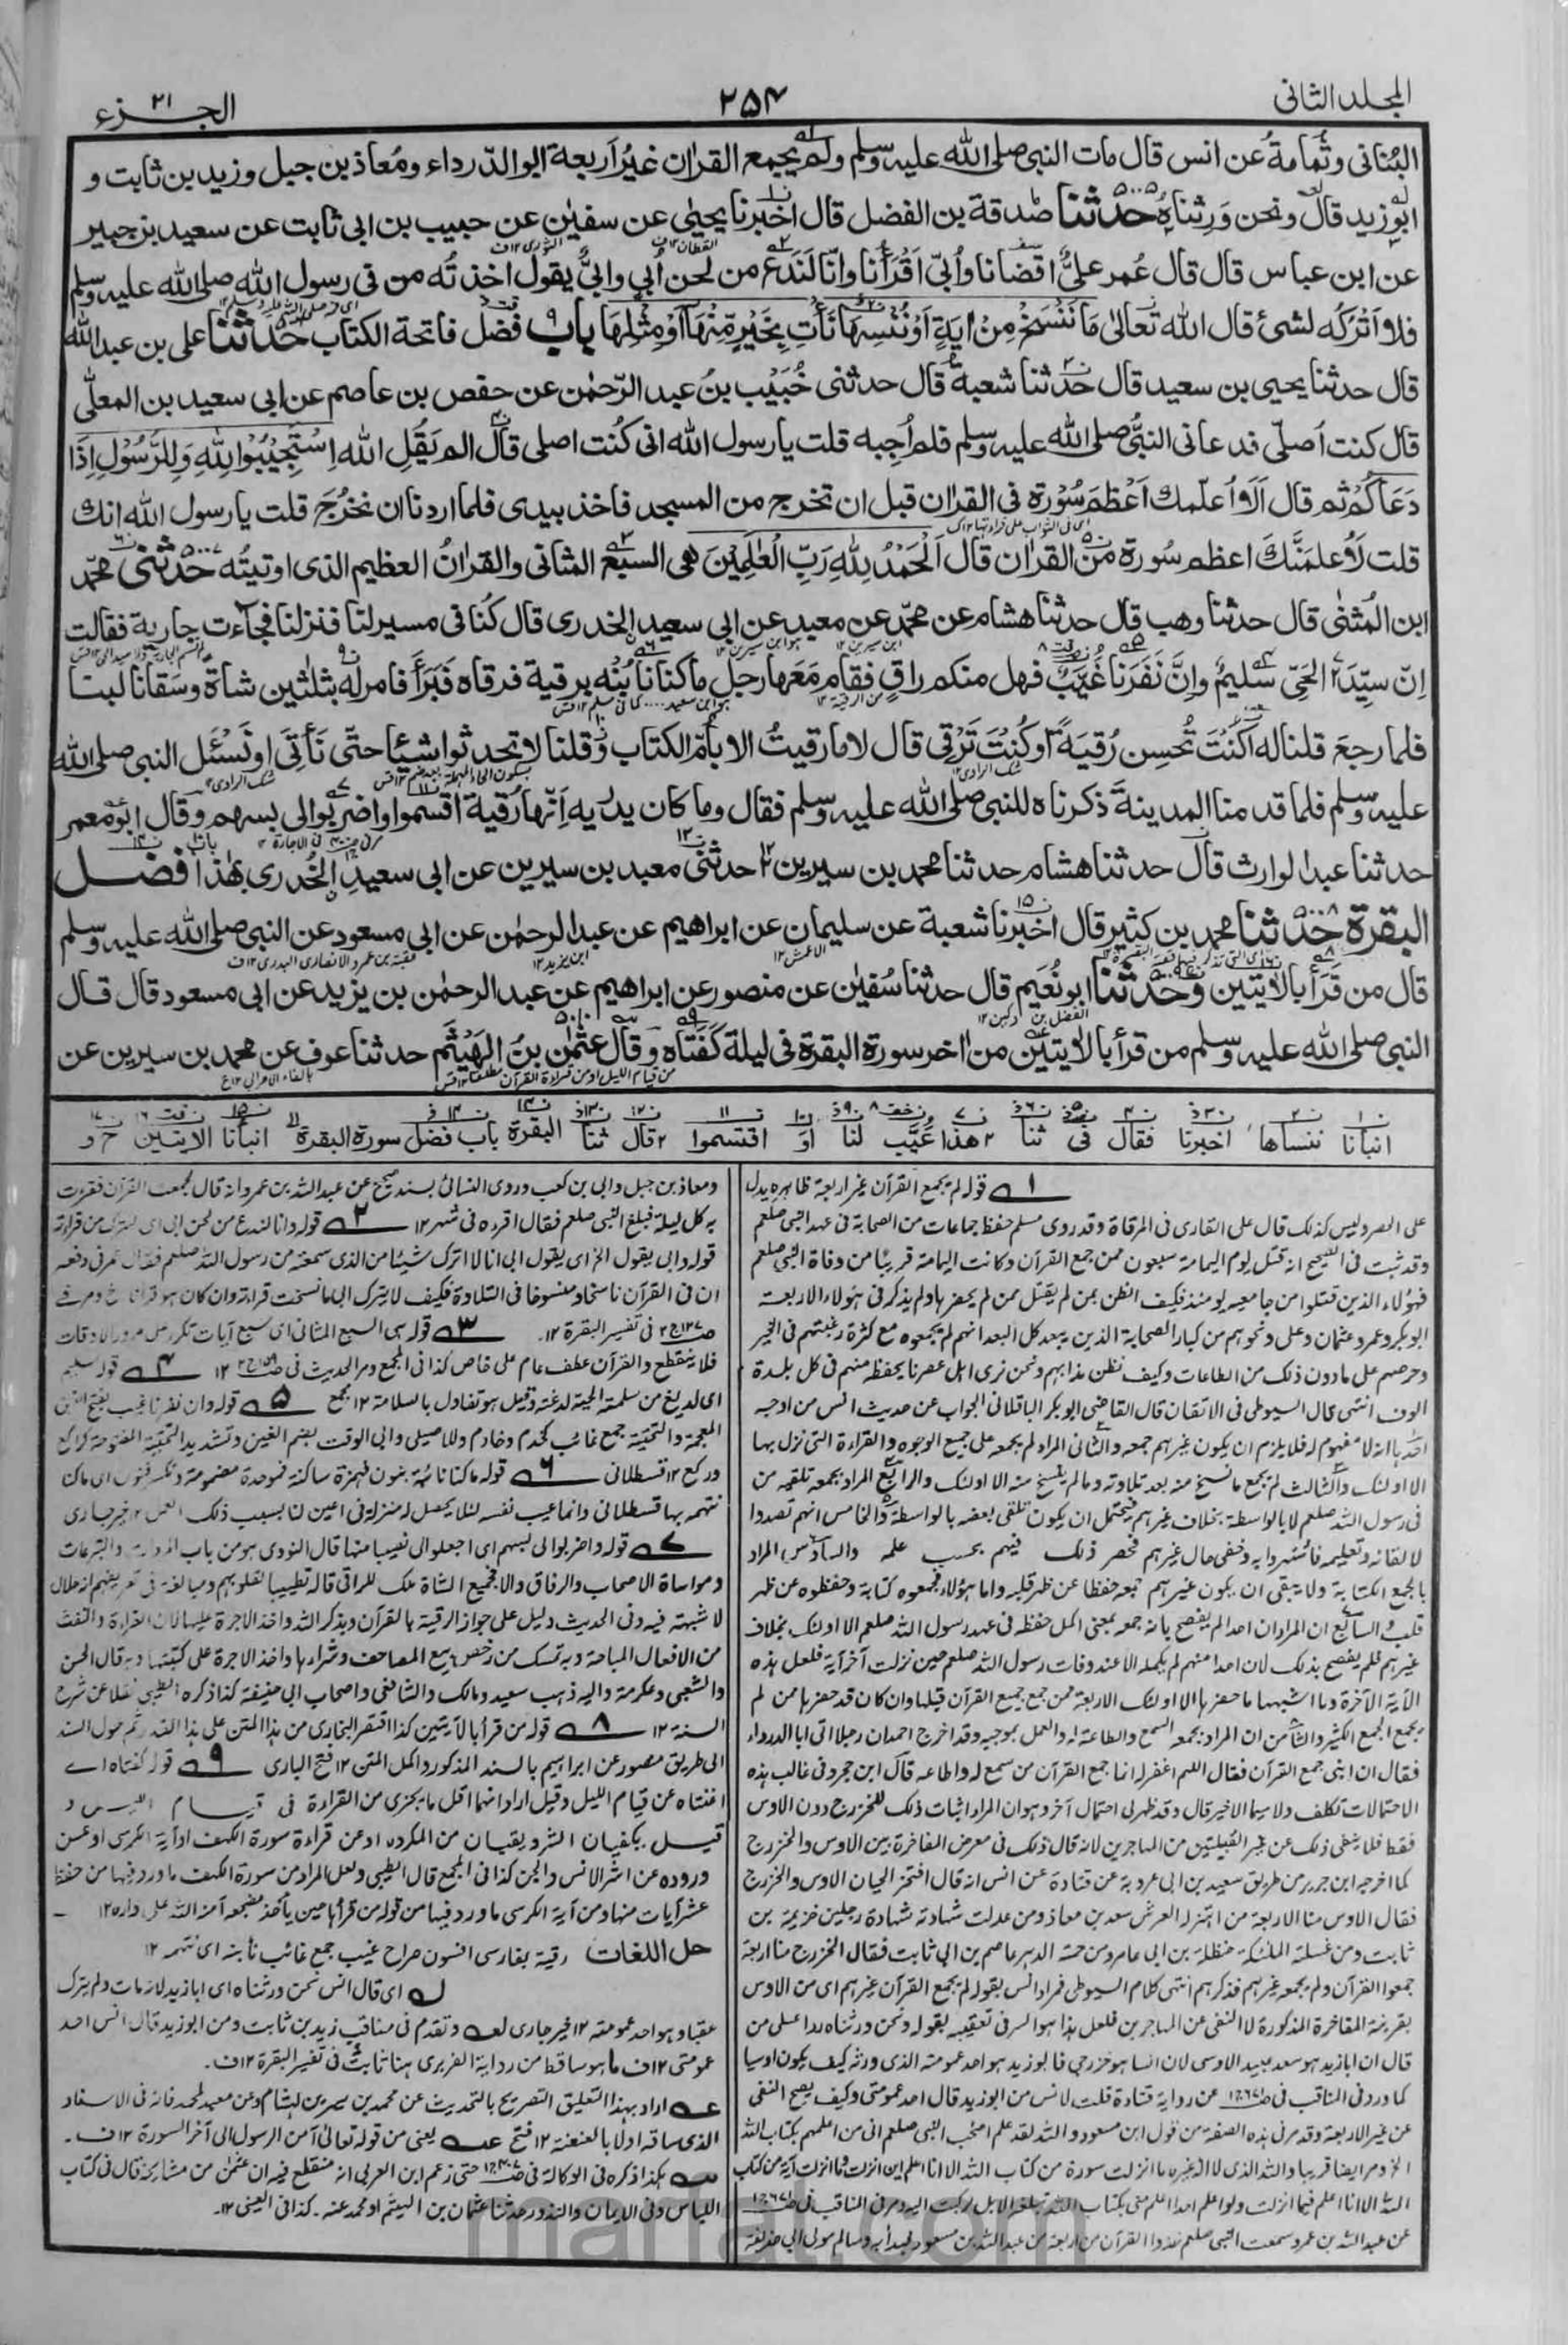 المجلد الثانی
۲۵۴
الجزء ۲۱
البُنانی وثُمامةُ عن انس قال مات النبی صلی الله علیه وسلم ولم یجمع القراٰن غیرُ اَربعة ابوالدّرداء ومُعاذ بن جبل وزید بن ثابت و
ابوزید قال ونحن وَرِثناهُ حدثنا صَدقة بن الفضل قال اخبرنا یحیٰی عن سفیٰن عن حبیب بن ابی ثابت عن سعید بن جبیر
عن ابن عباس قال قال عُمر علیٌّ اقضانا واُبیّ اَقْرَأنا وانّا لَنَدَع من لحن اُبی واُبیٌّ یقول اخذتُه من فی رسول الله صلی الله علیه وسلم
فلا اَترُکه لشیٔ قال الله تعالیٰ مَا نَنْسَخْ مِنْ اٰیَةٍ اَوْ نُنْسِهَا نَأْتِ بِخَیْرٍ مِّنْهَا اَوْ مِثْلِهَا باب فضل فاتحة الکتاب حدثنا علی بن عبدالله
قال حدثنا یحیی بن سعید قال حدثنا شعبة قال حدثنی خُبَیْب بنُ عبد الرّحمٰن عن حفص بن عاصم عن ابی سعید بن المعلّٰی
قال کنت اُصلّی فدعانی النبیُّ صلی الله علیه وسلم فلم اُجِبه قلت یارسول الله انی کُنت اصلی قال الم یَقُلِ الله اِسْتَجِیْبُوْا لِلّٰهِ وَلِلرَّسُوْلِ اِذَا
دَعَاکُمْ ثم قال اَلَا اُعلّمك اَعْظَمَ سُوْرة فی القراٰن قبل ان تخرج من المسجد فاخذ بیدی فلما اردنا ان نخرُجَ قلت یارسول الله انك
قلت لَاُعلمنَّكَ اعظم سُورة من القراٰن قال اَلْحَمْدُ لِلّٰهِ رَبِّ الْعٰلَمِیْنَ هی السبع المثانی والقراٰنُ العظیم الذی اوتیتُه حدثنی محمّد
ابن المُثنّٰی قال حدثنا وهب قال حدثنا هشام عن محمّد عن معبد عن ابی سعید الخدری قال کُنا فی مسیر لنا فنزلنا فجاءت جاریة فقالت
اِنّ سیّدَ الحَیّ سَلیمٌ واِنَّ نَفَرَنا غَیَبٌ فهل منکم راقٍ فقام مَعَها رجل ما کنا نَابُنُه برقیة فرقاه فَبَرَأَ فامرلَه بثلٰثین شاة وسَقَانا لبنا
فلما رجعَ قلنا له اَکُنْتَ تُحسِن رُقیَة او کُنْتَ تَرْقی قال لا ما رقیتُ الا باُمّ الکتاب وقلنا لا تحدثوا شیئا حتّٰی نَأتِیَ او نَسْئَل النبی صلی الله
علیه وسلم فلما قدمنا المدینةَ ذکرناه للنبی صلی الله علیه وسلم فقال وما کان یدریه اَنّها رُقیة اقسموا واضربوا لی بسهم وقال ابو معمر
حدثنا عبدالوارث قال حدثنا هشام حدثنا محمد بن سیرین حدثنی معبد بن سیرین عن ابی سعید الخُدری بهٰذا فضل
البقرة حدثنا محمد بن کثیر قال اخبرنا شعبة عن سلیمان عن ابراهیم عن عبدالرحمٰن عن ابی مسعود عن النبی صلی الله علیه وسلم
قال من قَرَأَ بالاٰیتین وحدثنا ابو نُعَیم قال حدثنا سُفیٰن عن منصور عن ابراهیم عن عبدالرحمٰن بن یزید عن ابی مسعود قال قال
النبی صلی الله علیه وسلم من قرأ بالاٰیتین من اٰخر سورة البقرة فی لیلة کَفَتَاه وقال عثمٰن بنُ الهَیْثَم حدثنا عوف عن محمد بن سیرین عن
انبانا ننساها اخبرنا فقال فی ثنا هذا غُیَّب لنا او اقتسموا قال ثنا البقرة باب فضل سورة البقرة انبأنا الاٰیتین ح و
۱ قوله لم یجمع القرآن غیر اربعة ظاهره یدل
علی الحصر ولیس کذلک قال علی القاری فی المرقاة وقد روی مسلم حفظ جماعات من الصحابة فی عهد النبی صلعم
وقد ثبت فی الصحیح انه قتل یوم الیمامة سبعون ممن جمع القرآن وکانت الیمامة قریبًا من وفاة النبی صلعم
فهؤلاء الذین قتلوا من جامعیه یومئذ فکیف الظن بمن لم یقتل ممن لم یحضرها ولم یذکر فی هؤلاء الاربعة
ابو بکر وعمر وعثمان وعلی ونحوهم من کبار الصحابة الذین یبعد کل البعد انهم لم یجمعوه مع کثرة رغبتهم فی الخیر
وحرصهم علی ما دون ذلک من الطاعات وکیف نظن هذا بهم ونحن نری اهل عصرنا یحفظه منهم فی کل بلدة
الوف انتهی قال السیوطی فی الاتقان قال القاضی ابو بکر الباقلانی الجواب عن حدیث انس من اوجه
احدها انه لا مفهوم له فلا یلزم ان یکون غیرهم جمعه والثانی المراد لم یجمعه علی جمیع الوجوه والقراءة التی نزل بها
الا اولئک والثالث لم یجمع ما نسخ منه بعد تلاوته وما لم ینسخ منه الا اولئک والرابع المراد بجمعه تلقیه من
فی رسول الله صلعم لا بالواسطة بخلاف غیرهم فیحتمل ان یکون تلقی بعضه بالواسطة والخامس انهم تصدوا
لالقائه وتعلیمه فاشتهروا به وخفی حال غیرهم فحصر ذلک فیهم بحسب علمه والسادس المراد
بالجمع الکتابة ولا ینفی ان یکون غیرهم جمعه حفظا عن ظهر قلبه واما هؤلاء فجمعوه کتابة وحفظوه عن ظهر
قلب والسابع ان المراد ان احدا لم یفصح بانه جمعه بمعنی اکمل حفظه فی عهد رسول الله صلعم الا اولئک بخلاف
غیرهم فلم یفصح بذلک لان احدا منهم لم یکمله الا عند وفات رسول الله صلعم حین نزلت آخر آیة فلعل هذه
الآیة الآخرة وما اشبهها ما حضرها الا اولئک الاربعة ممن جمع جمیع القرآن قبلها وان کان قد حضرها من لم
یجمع الجمع الکثیر والثامن ان المراد بجمعه السمع والطاعة له والعمل بموجبه وقد اخرج احمد ان رجلا اتی ابا الدرداء
فقال ان ابنی جمع القرآن فقال اللهم اغفر له انما جمع القرآن من سمع له واطاعه قال ابن حجر وفی غالب هذه
الاحتمالات تکلف ولا سیما الاخیر قال وقد ظهر لی احتمال آخر وهو ان المراد اثبات ذلک للخزرج دون الاوس
فقط فلا ینفی ذلک عن غیر القبیلتین من المهاجرین لانه قال ذلک فی معرض المفاخرة بین الاوس والخزرج
کما اخرجه ابن جریر من طریق سعید بن ابی عروبة عن قتادة عن انس انه قال افتخر الحیان الاوس والخزرج
فقال الاوس منا الاربعة من اهتز له العرش سعد بن معاذ ومن عدلت شهادته شهادة رجلین خزیمة بن
ثابت ومن غسلته الملئکة حنظلة بن ابی عامر ومن حمته الدبر عاصم بن ابی ثابت فقال الخزرج منا اربعة
جمعوا القرآن ولم یجمعه غیرهم فذکرهم انتهی کلام السیوطی فمراد انس بقوله لم یجمع القرآن غیرهم ای من الاوس
بقرینة المفاخرة المذکورة لا النفی عن المهاجرین فلعل هذا هو السر فی تعقیبه بقوله ونحن ورثناه ردا علی من
قال ان ابا زید هو سعد بن عبید الاوسی لان انسا هو خزرجی فابو زید هو احد عمومته الذی ورثه کیف یکون اوسیا
کما ورد فی المناقب عن روایة قتادة قلت لانس من ابو زید قال احد عمومتی وکیف یصح النفی
عن غیر الاربعة وقد مر فی هذه الصفحة من قول ابن مسعود والله لقد علم اصحب النبی صلعم انی من اعلمهم بکتاب الله
الخ ومر ایضا قریبا والله الذی لا اله غیره ما انزلت سورة من کتاب الله الا انا اعلم این انزلت وما انزلت آیة من کتاب
الله الا انا اعلم فیما انزلت ولو اعلم احدا اعلم منی بکتاب الله تبلغه الابل رکبت الیه ومر فی المناقب
عن عبد الله بن عمرو سمعت النبی صلعم خذوا القرآن من اربعة من عبد الله بن مسعود فبدأ به وسالم مولی ابی حذیفة
ومعاذ بن جبل وابی بن کعب وروی النسائی بسند صحیح عن عبد الله بن عمرو انه قال جمعت القرآن فقرءت
به کل لیلة فبلغ النبی صلعم فقال اقرءه فی شهر ۱۲ ۲ قوله وانا لندع من لحن ابی ای نترک من قراءته
قوله وابی یقول الخ ای یقول ابی انا لا اترک شیئا من الذی سمعته من رسول الله صلعم فقال عمر فی دفعه
ان فی القرآن ناسخا ومنسوخا فی التلاوة فکیف لا یترک ابی ما نسخت قراءته وان کان هو قرأنا
فی تفسیر البقرة ۱۲ ۳ قوله هی السبع المثانی ای سبع آیات تکرر علی مرور الاوقات
فلا ینقطع والقرآن عطف عام علی خاص کذا فی المجمع ومر الحدیث ۱۲ ۴ قوله سلیم
ای لدیغ من سلمته الحیة لدغته وقیل هو تفاؤل بالسلامة ۱۲ مجمع ۵ قوله وان نفرنا غیب بفتح الغین
المعجمة والتحتیة جمع غائب کخدم وخادم وللاصیلی وابی الوقت بضم الغین وتشدید التحتیة المفتوحة کراکع
ورکع ۱۲ قسطلانی ۶ قوله ما کنا نابنه بنون فهمزة ساکنة فموحدة مضمومة وتکسر فنون ای ما کنا
نتهمه بها قسطلانی
۷ قوله واضربوا لی بسهم ای اجعلوا لی نصیبا منها قال النووی هو من باب المروءات والتبرعات
ومواساة الاصحاب والرفاق والا فجمیع الشاة ملک للراقی قاله تطییبا لقلوبهم ومبالغة فی تعریفهم انه حلال
لا شبهة فیه وفی الحدیث دلیل علی جواز الرقیة بالقرآن وبذکر الله واخذ الاجرة علیها لان القراءة والنفث
من الافعال المباحة وبه تمسک من رخص بیع المصاحف وشراءها واخذ الاجرة علی کتبتها وبه قال الحسن
والشعبی وعکرمة والیه ذهب سعید ومالک والشافعی واصحاب ابی حنیفة کذا ذکره الطیبی نقلا عن شرح
السنة ۱۲ ۸ قوله من قرأ بالآیتین کذا اقتصر البخاری من هذا المتن علی هذا القدر ثم حول السند
الی طریق منصور عن ابراهیم بالسند المذکور واکمل المتن ۱۲ فتح الباری ۹ قوله کفتاه ای
اغنتاه عن قیام اللیل وقیل اراد انهما اقل ما یجزئ من القراءة فی قیام اللیل و
قیل یکفیان الشر ویقیان من المکروه او عن قراءة سورة الکهف او آیة الکرسی او عن
وروده عن اشر الانس والجن کذا فی المجمع قال الطیبی ولعل المراد من سورة الکهف ما ورد فیها من حفظ
عشر آیات منها ومن آیة الکرسی ما ورد فیها من قوله من قرأها حین یأخذ مضجعه آمنه الله علی داره ۱۲
حل اللغات رقیة بفارسی افسون صراح غیب جمع غائب نأبنه ای نتهمه ۱۲
له ای قال انس نحن ورثناه ای ابا زید لانه مات ولم یترک
عقبا وهو احد عمومته ۱۲ خیر جاری لعه وتقدم فی مناقب زید بن ثابت ومن ابو زید قال انس احد
عمومتی ۱۲ ف ما هو ساقط من روایة الفربری هنا ثابت فی تفسیر البقرة ۱۲ ف۔
عه اراد بهذا التعلیق التصریح بالتحدیث عن محمد بن سیرین لهشام وعن معبد لمحمد فانه فی الاسناد
الذی ساقه اولا بالعنعنة ۱۲ فتح عه یعنی من قوله تعالیٰ آمن الرسول الی آخر السورة ۱۲ ف۔
هکذا ذکره فی الوکالة حتی زعم ابن العربی انه منقطع فیه ان عثمٰن من مشایخه قال فی کتاب
اللباس وفی الایمان والنذور حدثنا عثمان بن الهیثم او محمد عنه۔ کذا فی العینی ۱۲۔
marfat.com